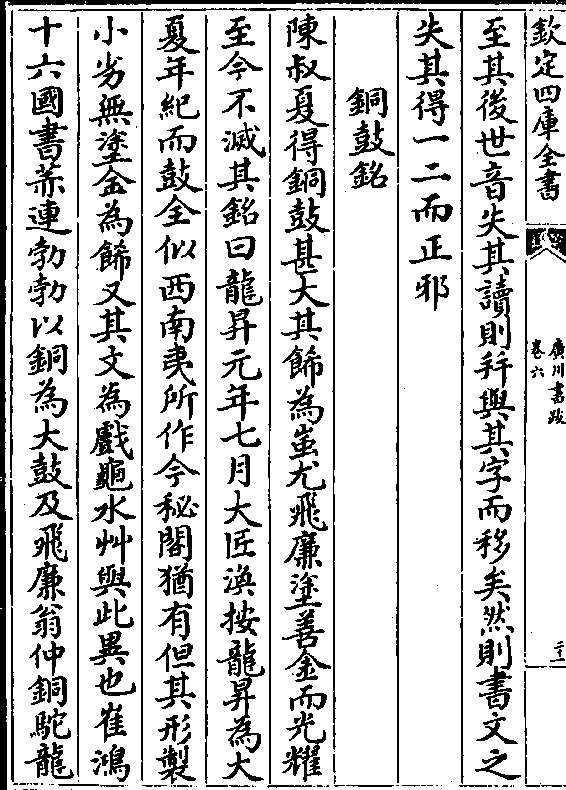 欽定四庫全書
廣川書跋
卷六
二十一
至其後世音失其讀則并與其字而移矣然則書文之
失其得一二而正邪
銅鼓銘
陳叔夏得銅鼓甚大其飾為蚩尤飛廉塗善金而光耀
至今不滅其銘曰龍昇元年七月大匠渙按龍昇為大
夏年紀而鼓全似西南夷所作今秘閣猶有但其形製
小劣無塗金為飾又其文為戲龜水艸與此異也崔鴻
十六國書赫連勃勃以銅為大鼓及飛廉翁仲銅駝龍